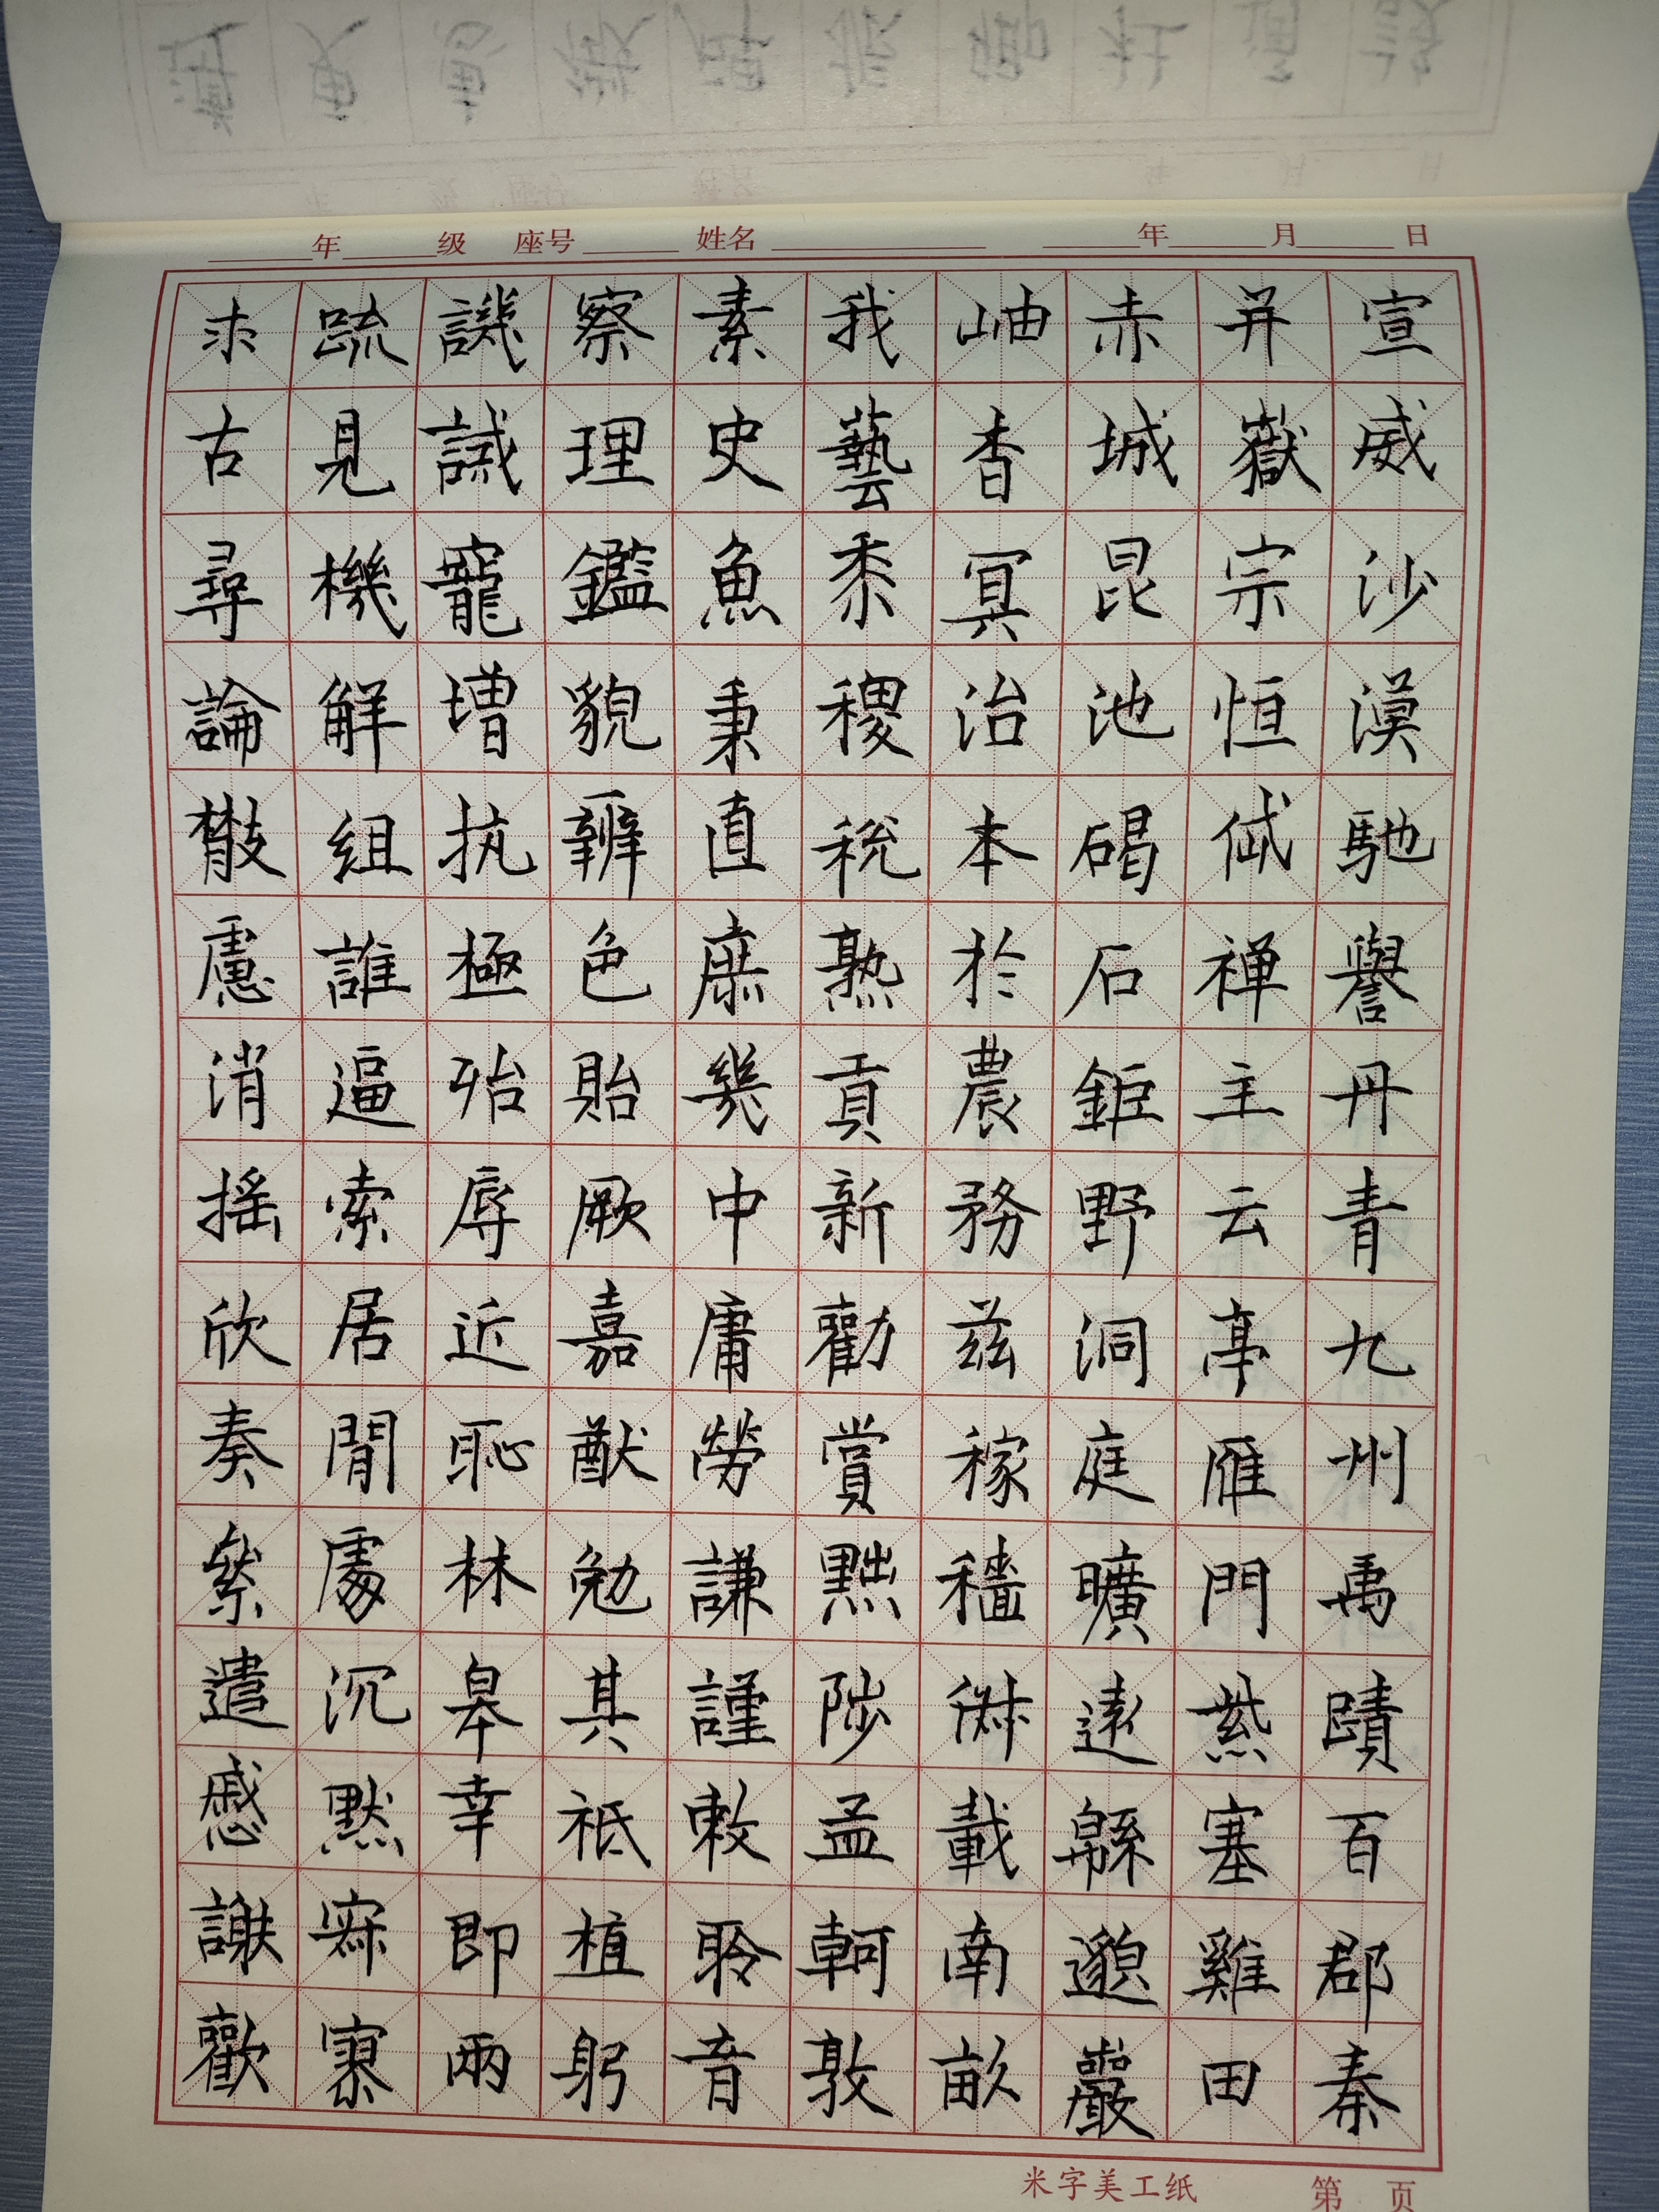 年 级 座号 姓名 年 月 日
宣威沙漠馳譽丹青九州禹蹟百郡秦
并嶽宗恒岱禅主云亭雁門紫塞雞田
赤城昆池碣石鉅野洞庭曠遠緜邈巖
岫杳冥治本於農務兹稼穑俶載南畝
我藝黍稷稅熟貢新勸賞黜陟孟軻敦
素史魚秉直庶幾中庸勞謙謹敕聆音
察理鑑貌辨色貽厥嘉猷勉其祗植躬
譏誡寵增抗極殆辱近恥林皋幸即兩
疏見機解組誰逼索居閒處沉默寂寥
求古尋論散慮消摇欣奏累遣慼謝歡
米字美工纸 第 页